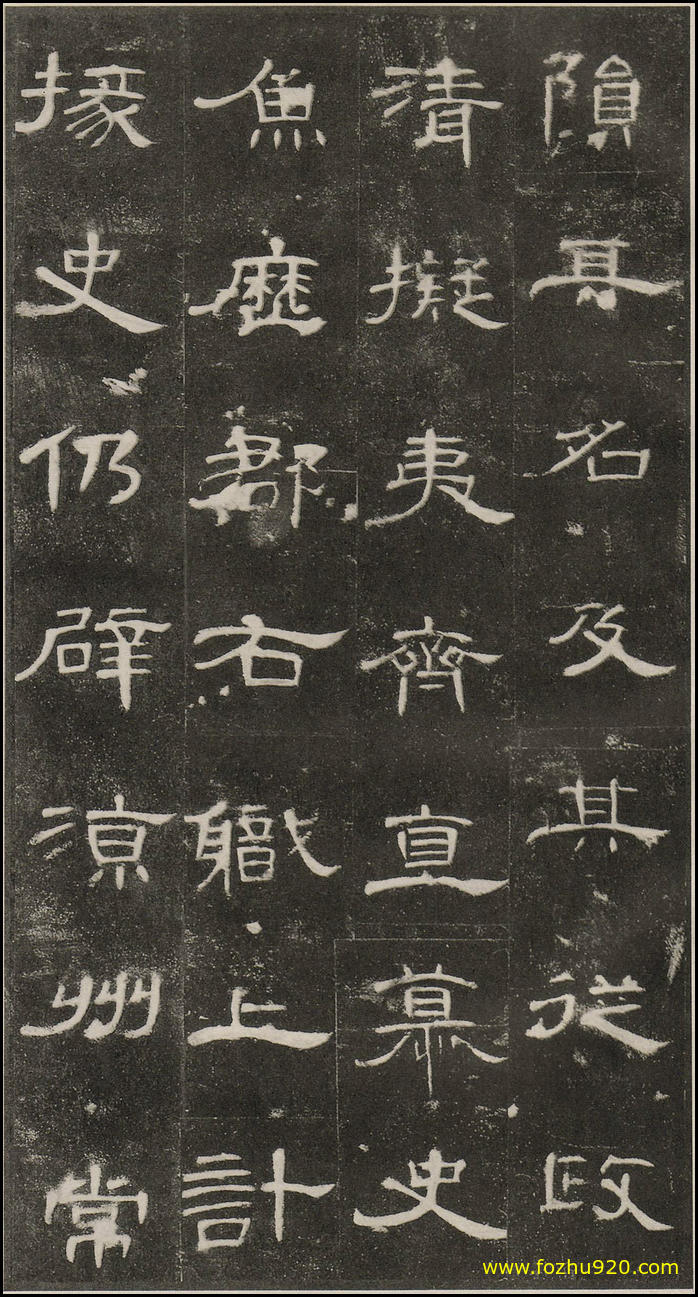 隕其名及其從政
清擬夷齊直慕史
魚歷郡右職上計
掾史仍辟涼州常
www.fozhu920.com